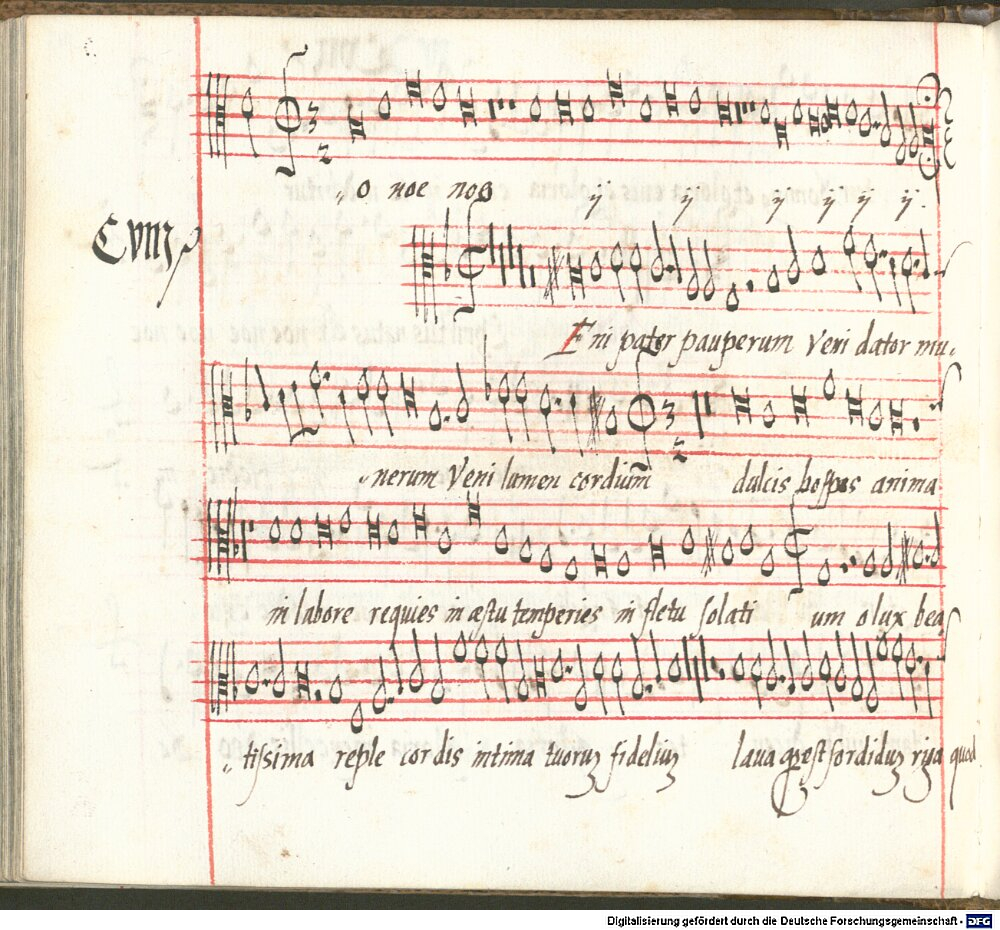 „o noe noe ij ij ij ij ij ij.
CVM
Eni pater pauperum Veni dator mu„
„nerum Veni lumen cordium dulcis hospes anima
in labore requies in æstu temperies in fletu solati um o lux bea
„tissima reple cordis intima tuoruz fideliuz laua qz est sordiduz riga quod
Digitalisierung gefördert durch die Deutsche Forschungsgemeinschaft - DFG